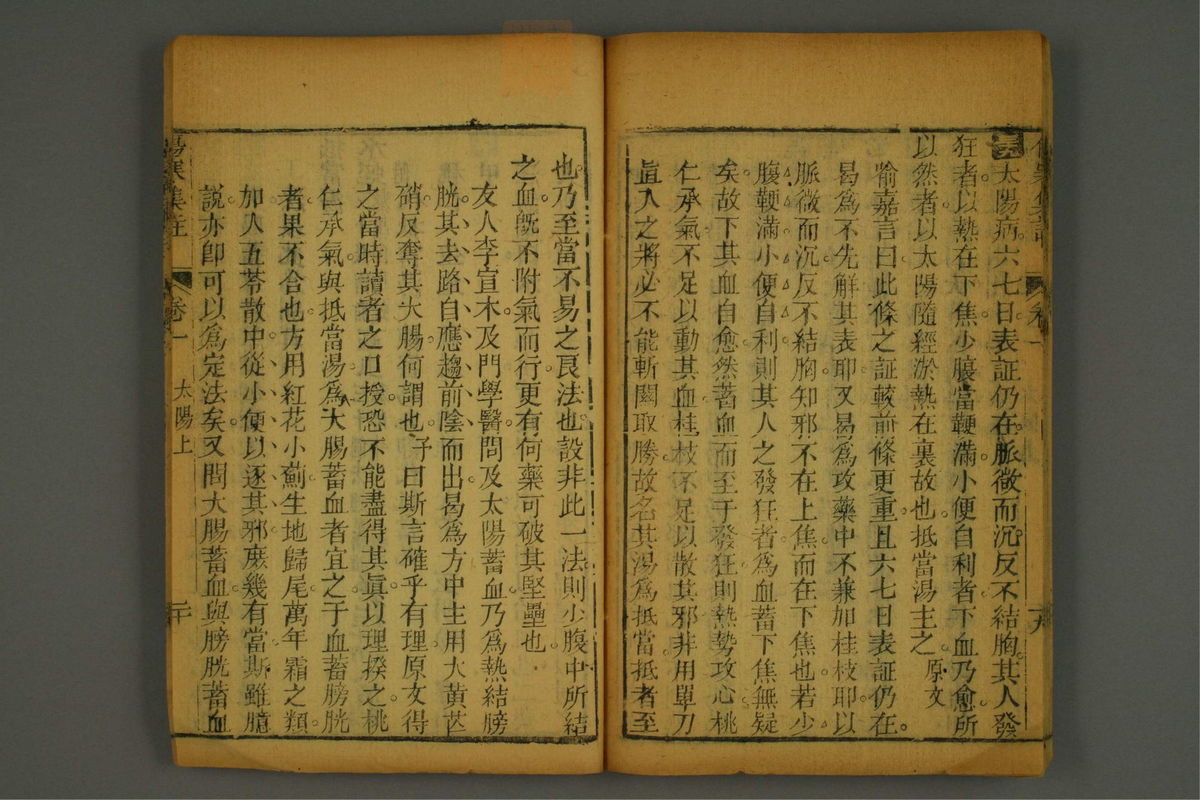 太陽病六七日表証仍在脈微而沉反不結胸其人發
狂者以熱在下焦少腹當鞕滿小便自利者下血乃愈所
以然者以太陽隨經淤熱在裏故也抵當湯主之原文
喻嘉言曰此條之証較前條更重且六七日表証仍在
曷為不先解其表耶又曷為攻藥中不兼加桂枝耶以
脈微而沉反不結胸知邪不在上焦而在下焦也若少
腹鞕滿小便自利則其人之發狂者為血蓄下焦無疑
矣故下其血自愈然蓄血而至于發狂則熱勢攻心桃
仁承氣不足以動其血桂枝不足以散其邪非用單刀
直入之將必不能斬關取勝故名其湯為抵當抵者至
卷一
十九
也乃至當不易之良法也設非此一法則少腹中所結
之血旣不附氣而行更有何藥可破其堅壘也
友人李宣木及門學醫問及太陽蓄血乃為熱結膀
胱其去路自應趨前陰而出曷為方中主用大黃芒
硝反奪其大腸何謂也予曰斯言確乎有理原文得
之當時讀者之口授恐不能盡得其眞以理揆之桃
仁承氣與抵當湯為大腸蓄血者宜之于血蓄膀胱
者果不合也方用紅花小薊生地歸尾萬年霜之類
加入五苓散中從小便以逐其邪庶幾有當斯雖臆
說亦卽可以為定法矣又問大腸蓄血與膀胱蓄血
傷寒集註
卷一
太陽上
二十